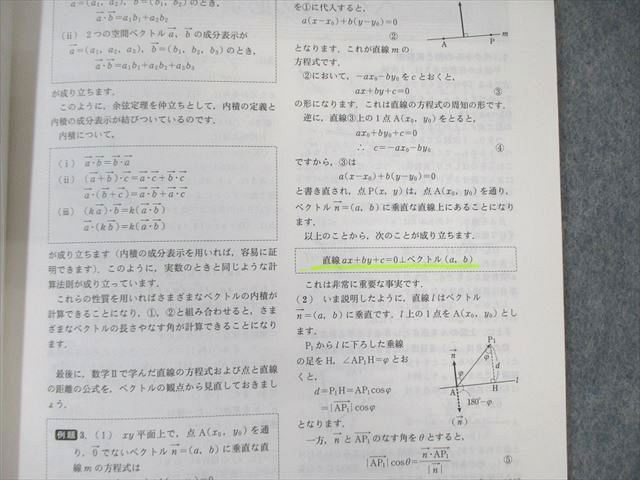 a=(a₁, a₂), b=(b₁, b₂) のとき,
a・b=a₁b₁+a₂b₂
(ii) 2つの空間ベクトルa, bの成分表示が
a=(a₁, a₂, a₃), b=(b₁, b₂, b₃) のとき,
a・b=a₁b₁+a₂b₂+a₃b₃
が成り立ちます.
このように, 余弦定理を仲立ちとして, 内積の定義と
内積の成分表示が結びついているのです.
内積について,
(i) a・b=b・a
(ii) (a+b)・c=a・c+b・c
a・(b+c)=a・b+a・c
(iii) (ka)・b=k(a・b)
a・(kb)=k(a・b)
が成り立ちます (内積の成分表示を用いれば, 容易に証
明できます). このように, 実数のときと同じような計
算法則が成り立っています.
これらの性質を用いればさまざまなベクトルの内積が
計算できることになり, ①, ②と組み合わせると, さま
ざまなベクトルの長さやなす角が計算できることになり
ます.
最後に, 数学Ⅱで学んだ直線の方程式および点と直線
の距離の公式を, ベクトルの観点から見直しておきまし
ょう.
例題 3. (1) xy平面上で, 点A(x₀, y₀) を通
り, 0でないベクトルn=(a, b) に垂直な直
線mの方程式は
を①に代入すると,
a(x−x₀)+b(y−y₀)=0
②
A P m
となります. これが直線mの
方程式です.
②において, −ax₀−by₀をcとおくと,
ax+by+c=0 ③
の形になります. これは直線の方程式の周知の形です.
逆に, 直線③上の1点A(x₀, y₀) をとると,
ax₀+by₀+c=0
∴ c=−ax₀−by₀ ④
ですから, ③は
a(x−x₀)+b(y−y₀)=0
と書き直され, 点P(x, y) は, 点A(x₀, y₀) を通り,
ベクトルn=(a, b) に垂直な直線上にあることになり
ます.
以上のことから, 次のことが成り立ちます.
直線ax+by+c=0⊥ベクトル(a, b)
これは非常に重要な事実です.
(2) いま説明したように, 直線lはベクトル
n=(a, b) に垂直です. l上の1点をA(x₀, y₀) とし
ます.
P₁からlに下ろした垂線
の足をH, ∠AP₁H=φとお
くと,
d=P₁H=AP₁cosφ
=|AP₁|cosφ
となります.
n P₁ φ d φ A H l 180°−φ (n)
一方, nとAP₁のなす角をθとすると,
|AP₁|cosθ=n・AP₁/|n| ⑤